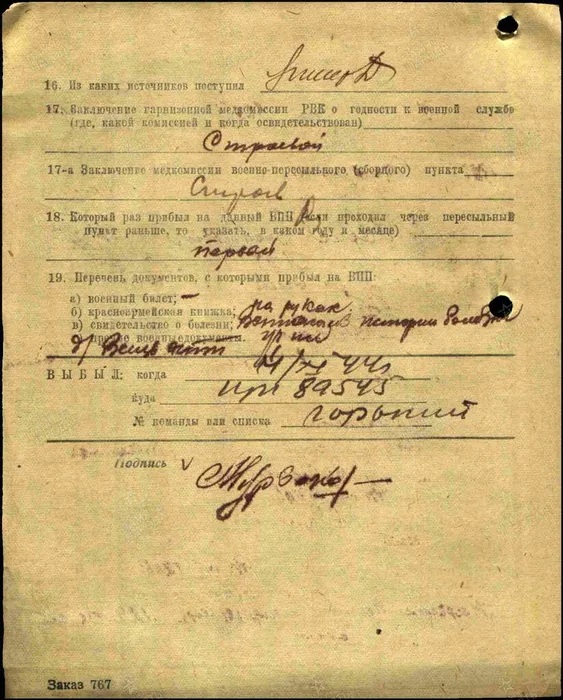 16. Из каких источников поступил
17. Заключение гарнизонной медкомиссии РВК о годности к военной службе
(где, какой комиссией и когда освидетельствован)
Строевой
17-а Заключение медкомиссии военно-пересыльного (сборного) пункта
Строев
18. Который раз прибыл на данный ВПП (если проходил через пересыльный
пункт раньше, то указать, в каком году и месяце)
первый
19. Перечень документов, с которыми прибыл на ВПП:
а) военный билет; —
б) красноармейская книжка; на руках
в) свидетельство о болезни; истории болезни
г) прочие военные документы.
д) Вещь
ВЫБЫЛ: когда 14/XI 44г
куда 89545
№ команды или списка Горький
Подпись V
Заказ 767